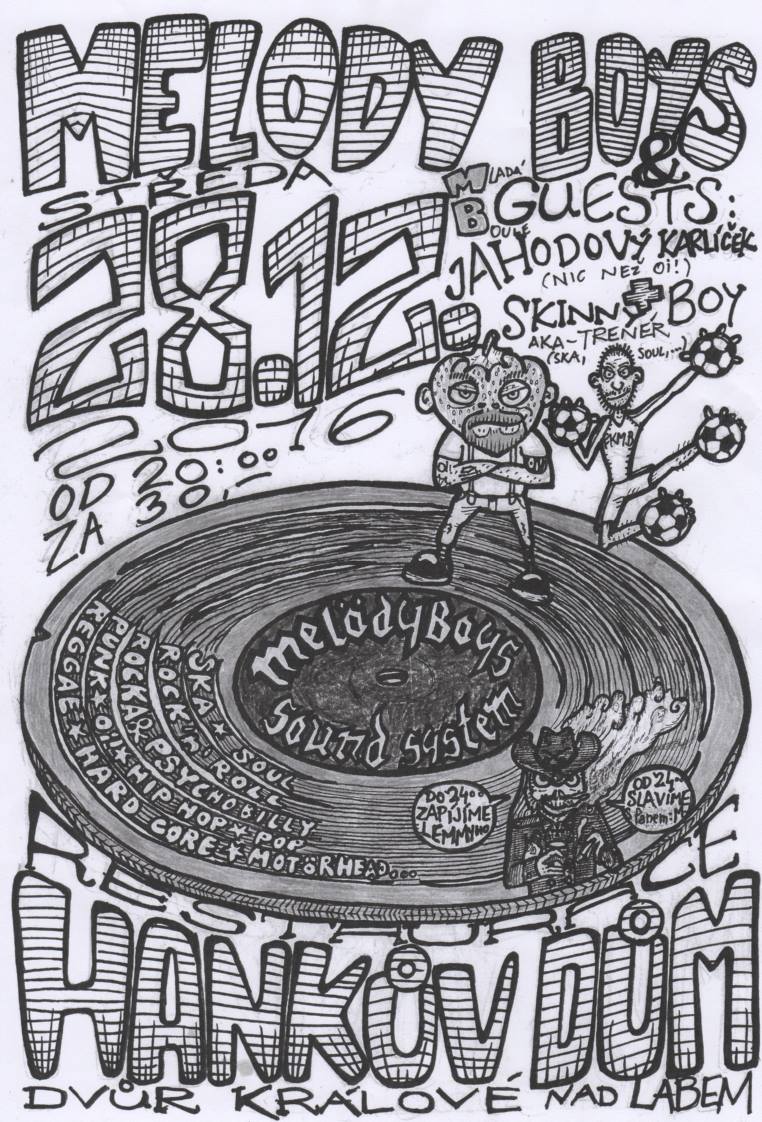 MELODY BOYS
STŘEDA
28.12.
2016
OD 20:00
ZA 30,-
&
GUESTS:
MLADÁ
BOULE
JAHODOVÝ KARLÍČEK
(NIC NEŽ OI!)
SKINNY BOY
AKA-TRENÉR
(SKA, SOUL,...)
PKM.B
melödyBoys
sound system
SKA ★ SOUL
ROCK'N'ROLL
ROCKABILLY PSYCHOBILLY
PUNK ★ OI! ★ HIP HOP ★ POP
REGGAE ★ HARD CORE ★ MOTÖRHEAD...
DO 24°°
ZAPÍJÍME
LEMMYHO
OD 24°°
SLAVÍME
RESTAURACE
HANKŮV DŮM
DVŮR KRÁLOVÉ NAD LABEM